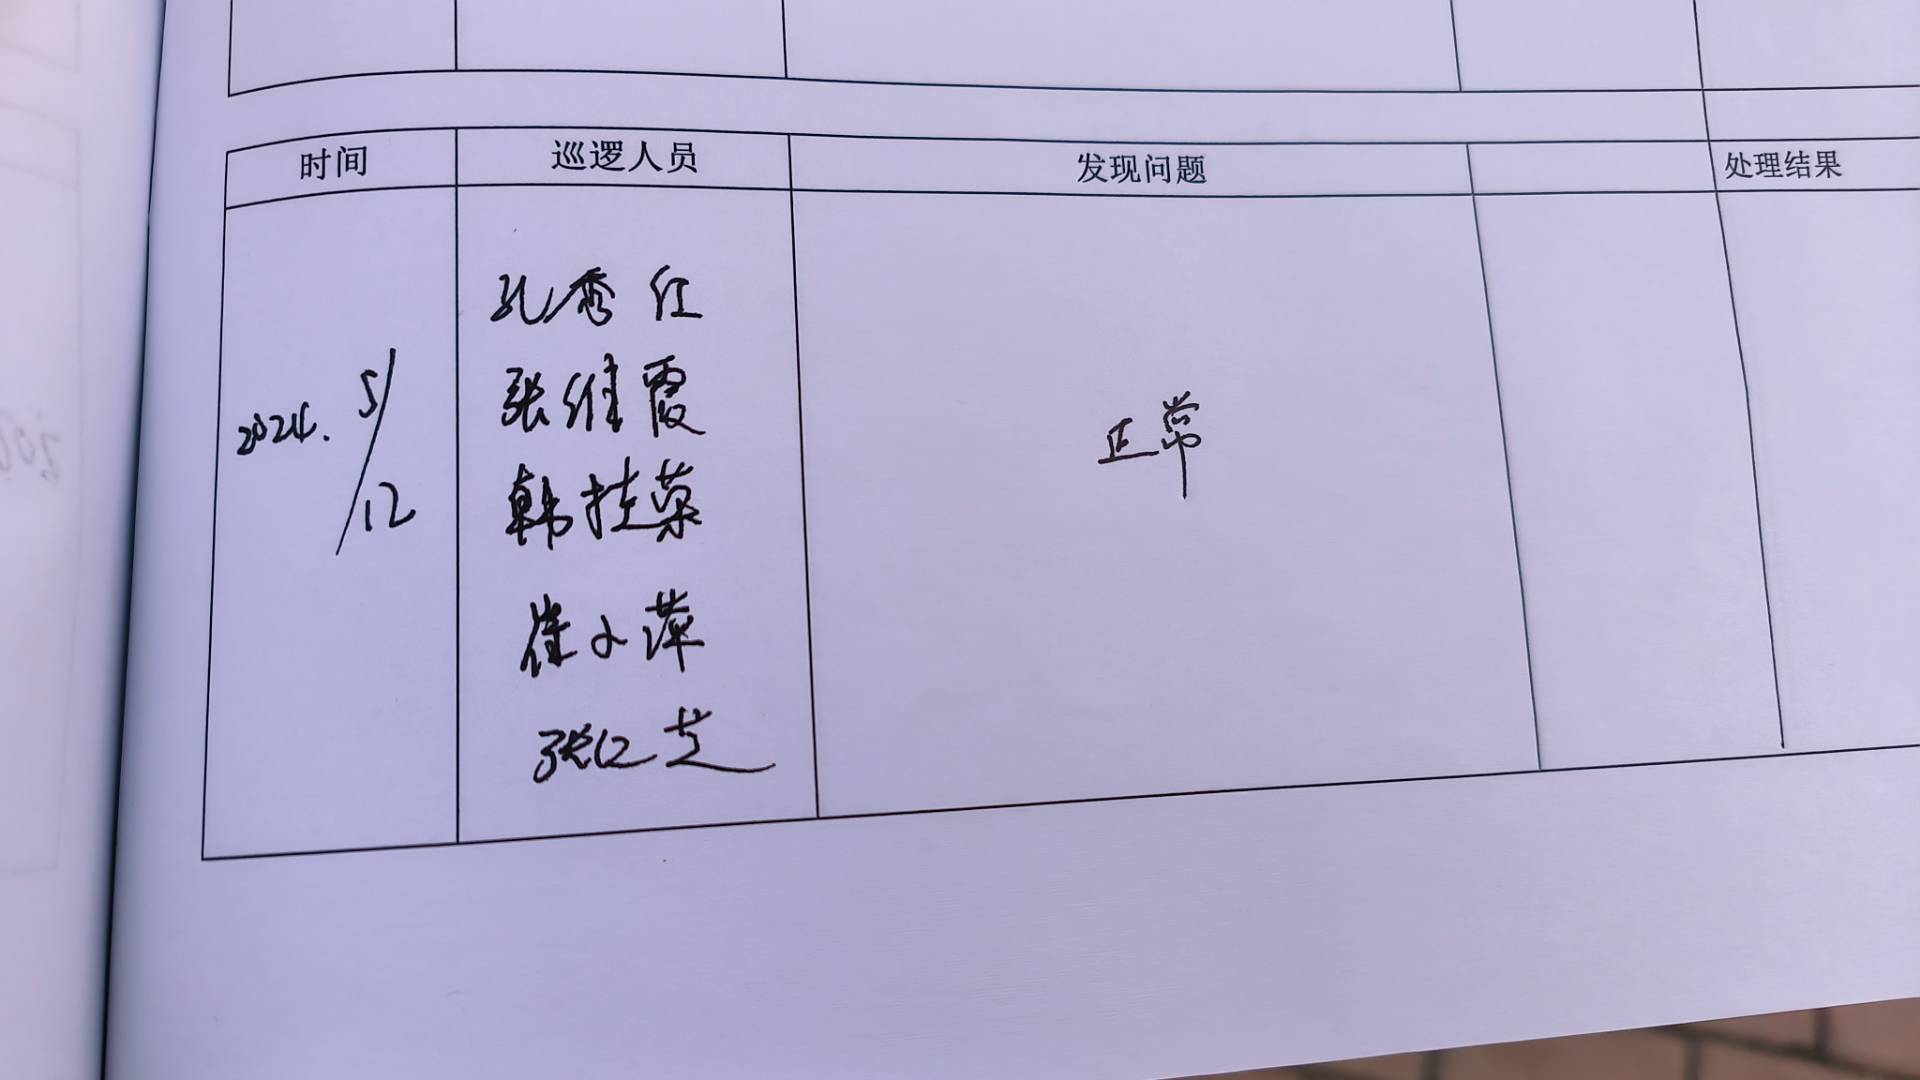 时间 巡逻人员 发现问题 处理结果
孔秀红
张维霞
2024. 5/12
正常
韩桂荣
崔小萍
张仁芝